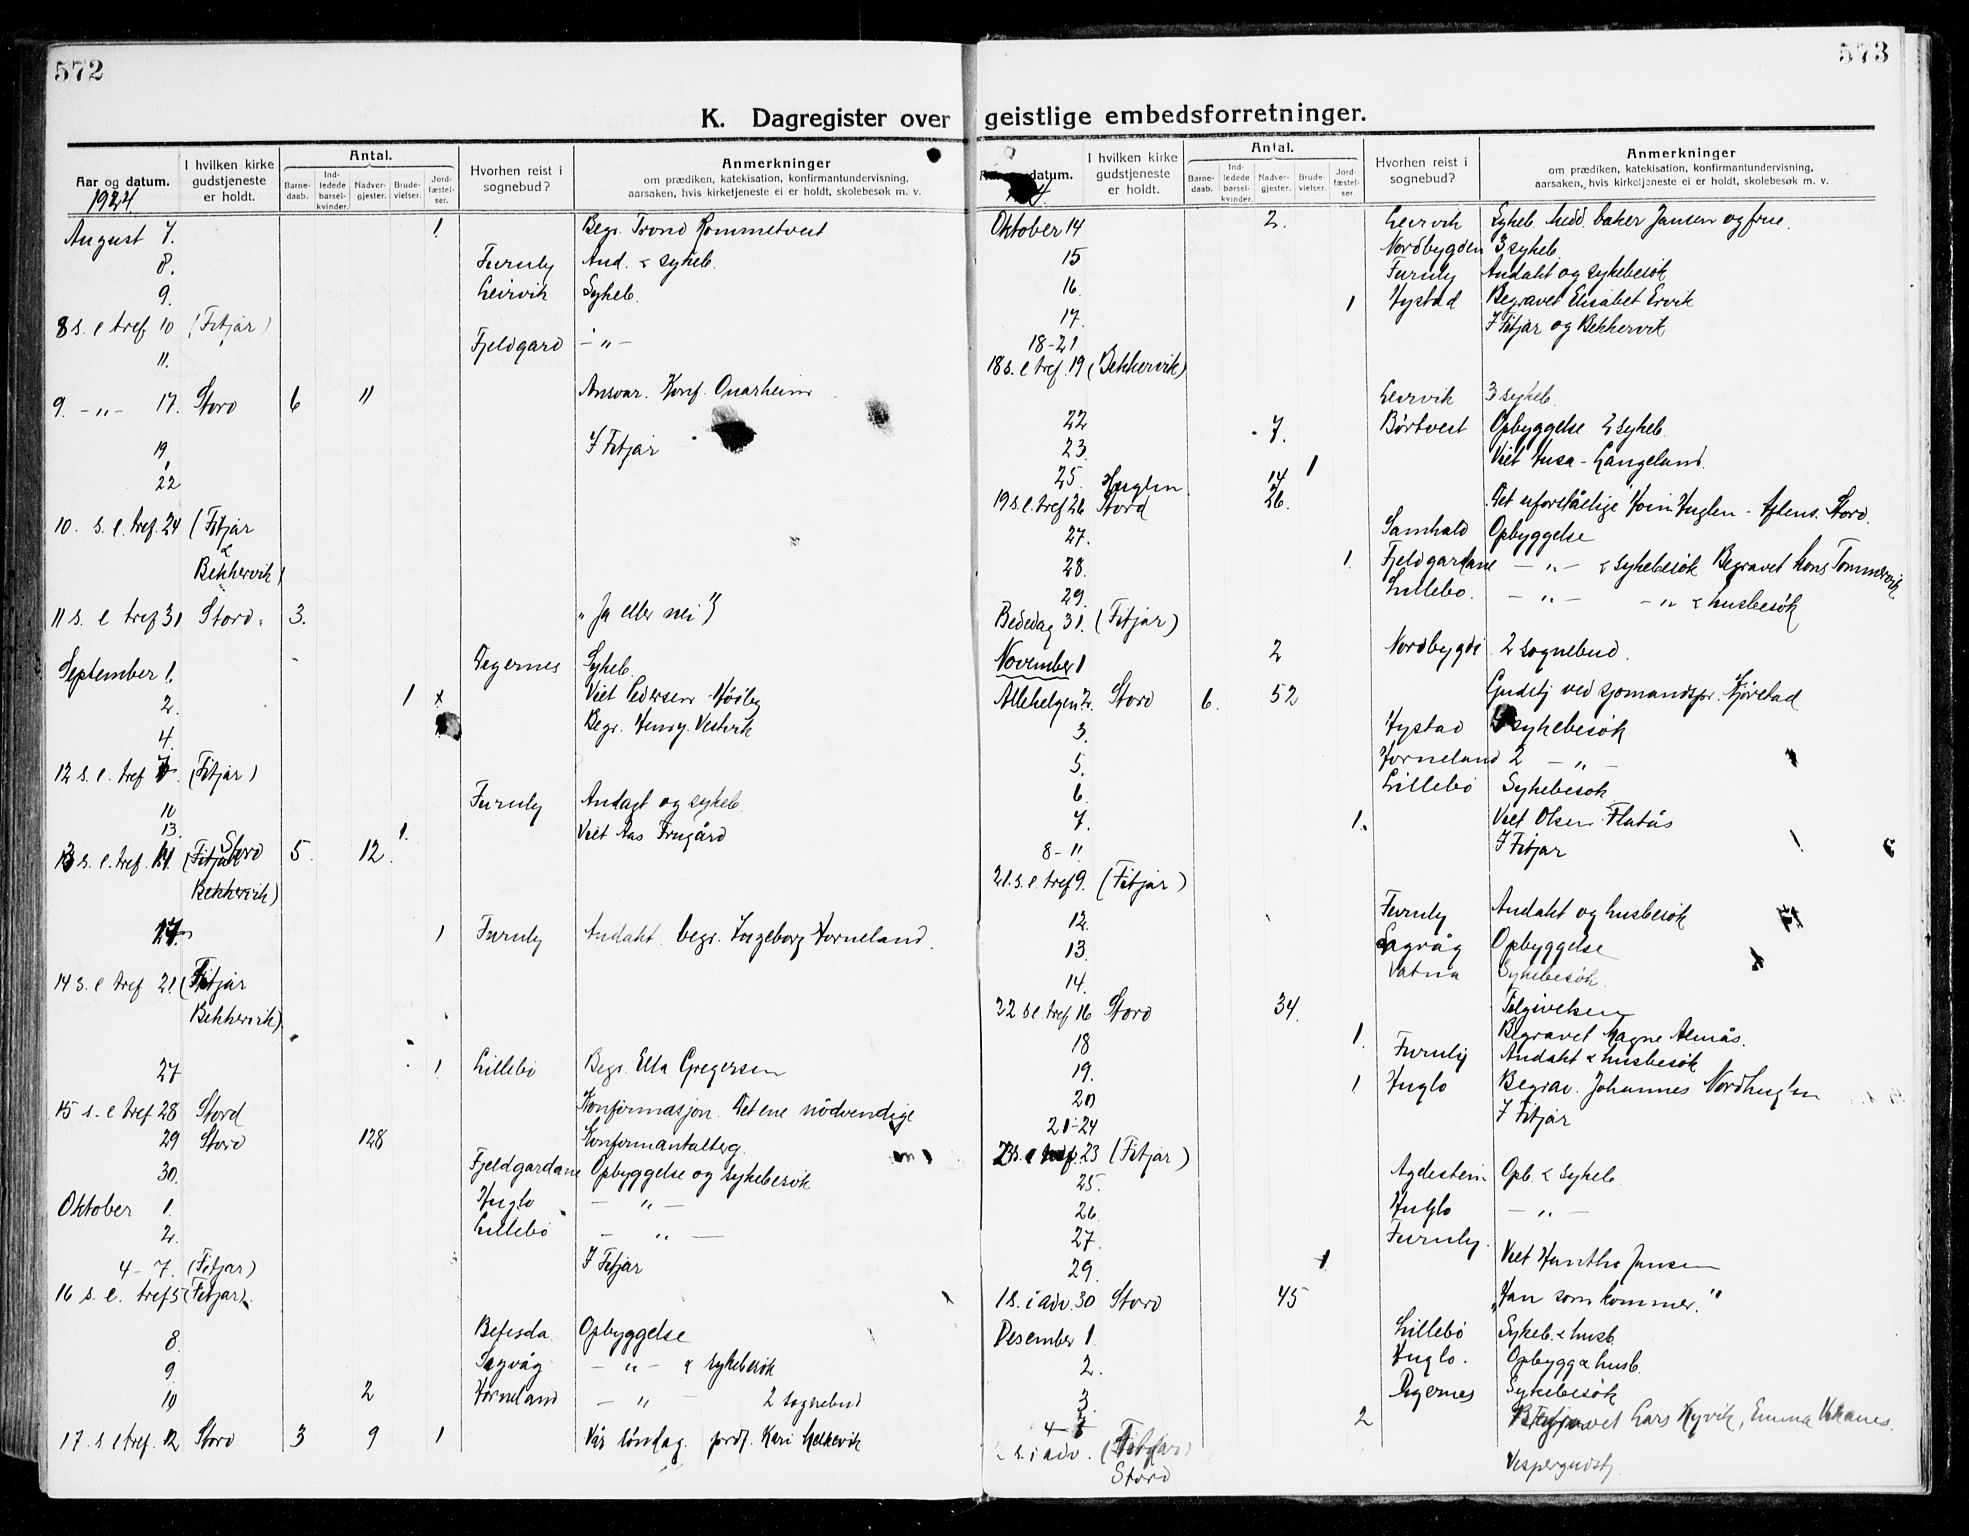 572
K. Dagregister over
Aar og datum. I hvilken kirke gudstjeneste er holdt. Antal. Barnedaab. Indledede barselkvinder. Nadvergjester. Brudevielser. Jordfæstelser. Hvorhen reist i sognebud? Anmerkninger om prædiken, katekisation, konfirmantundervisning, aarsaken, hvis kirketjeneste ei er holdt, skolebesøk m. v.
1924
August 7. 1 Begr. Trond Rommetveit
8. Furuly And. & sykeb.
9. Leirvik Sykeb.
8 s. e tref 10 (Fitjar)
11. Fjeldgard - " -
9. - " - 17. Stord 6 11 Ansvar. Konf.
19 I Fitjar
22
10. s. e. tref. 24 (Fitjar
&
Bekkervik)
11 s. e tref 31 Stord. 3. "Ja eller nei"
September 1. Degernes Sykeb.
2. 1 x Viet Pedersen
4. Begr. Henry Vestvik
12 s. e. tref 7. (Fitjar)
10 Furuly Andagt og sykeb.
13. 1. Viet Aas Frugård
13 s. e. tref. 14. Stord 5. 12.
Bekkervik)
17. 1 Furuly Andakt. begr. Ingeborg Horneland.
14 s. e tref 21. (Fitjar
Bekkervik)
27 1 Lillebø Begr. Ella Gregersen
15 s. e tref 28 Stord Konfirmasjon. Det ene nödvendige
29 Stord 128 Konfirmantalterg.
30. Fjeldgardane Opbyggelse og sykebesøk
Oktober 1. Huglo - " -
2. Lillebö - " -
4-7. (Fitjar) I Fitjar
16 s. e. tref 5 (Fitjar).
8. Betesda Opbyggelse
9. Sagvåg - " - & sykebesøk
10 2 Horneland - " - 2 sognebud
17. s e tref. 12 Stord 3 9 1 Vår söndag. jordf. Kari Helkevik
573
geistlige embedsforretninger.
datum. I hvilken kirke gudstjeneste er holdt. Antal. Barnedaab. Indledede barselkvinder. Nadvergjester. Brudevielser. Jordfæstelser. Hvorhen reist i sognebud? Anmerkninger om prædiken, katekisation, konfirmantundervisning, aarsaken, hvis kirketjeneste ei er holdt, skolebesøk m. v.
Oktober 14 2. Leirvik Sykeb. hedd. baker Jansen og frue.
15 Nordbygden 3 sykeb.
16. Furuly Andakt og sykebesök
17. 1 Hystad Begravet Elisabet Ervik
18-21 I Fitjar og Bekkervik
18 s. e tref. 19 (Bekkervik)
22 Leirvik 3 sykeb.
23. 7. Börtveit Opbyggelse 2 sykeb.
25. 1 Viet Langeland.
Huglen 14
19 s. e. tref 26 Stord 26. Det uforståelige Huglen - Aftens. Stord.
27. Samhald Opbyggelse
28. 1. Fjeldgardane - " - & sykebesök Begravet Hans Tommervik
29. Lillebø. - " - - " & husbesök
Bededag 31. (Fitjar)
November 1 2 Nordbygdi 2 sognebud.
Allehelgen 2. Stord 6. 52 Gudstj ved sjomandspr.
3. Hystad sykebesök
5. Horneland 2 - " -
6. Lillebø Sykebesok
7. 1. Viet Olsen Flatås
8-11. I Fitjar
21. s. e. tref 9. (Fitjar)
12. Furuly Andakt og husbesök
13. Sagvåg Opbyggelse
14. Vatna Sykebesök.
22 s e. tref 16 Stord 34. Tilgivelsen
18 1. Begravet Magne Almås.
19. Furuly Andakt & husbesök
20 1 Huglo Begrav. Johannes Nordhuglen
21-24 I Fitjar
23 s. e tref. 23 (Fitjar)
25. Agdestein Opb. & sykeb.
26. Huglo - " -
27. Furuly.
29. 1 Viet Jansen
1 s. i adv. 30 Stord 45 "Han som kommer."
Desember 1. Lillebö Sykeb. & husb.
2. Huglo. Opbygg & husb.
3. Digernes Sykebesök
4 2 Begravet Lars Kyvik, Emma
s. i adv. (Fitjar)
Stord Vespergudstj.